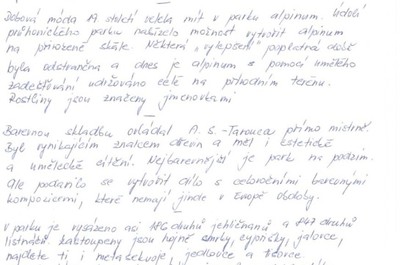 Dobová móda A století velela mít v parku alpinum. Údolí
průhonického parku nabízelo možnost vytvořit alpinum
na přirozené skále. Některá „vylepšení" poplatná době
byla odstraněna a dnes je alpinum s pomocí umělého
zadešťování udržováno celé na původním terénu.
Rostliny jsou značeny jmenovkami
Barevnou skladbu ovládal A. S. -Tarouca přímo mistrně.
Byl vynikajícím znalcem dřevin a měl i estetické
a umělecké cítění. Nejbarevnější je park na podzim.
Ale podařilo se vytvořit dílo s celoročními barevnými
kompozicemi, které nemají jinde v Evropě obdoby.
V parku je vysázeno asi druhů jehličnanů a druhů
listnáčů. Zastoupeny jsou hojně smrky, cypřišky, jalovce,
najdete tu i metasekvoje, jedlovce a tisovce